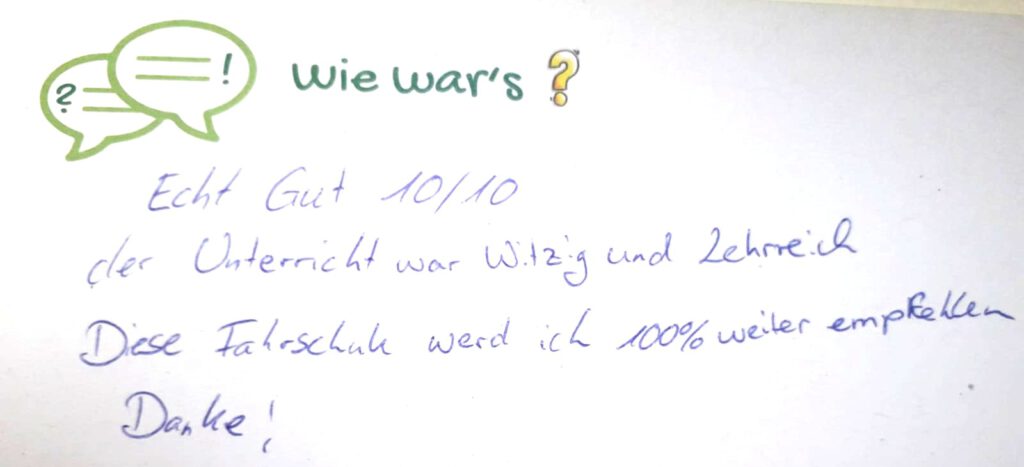 ? ! wie war's ?
Echt Gut 10/10
der Unterricht war Witzig und Lehrreich
Diese Fahrschule werd ich 100% weiter empfehlen
Danke!